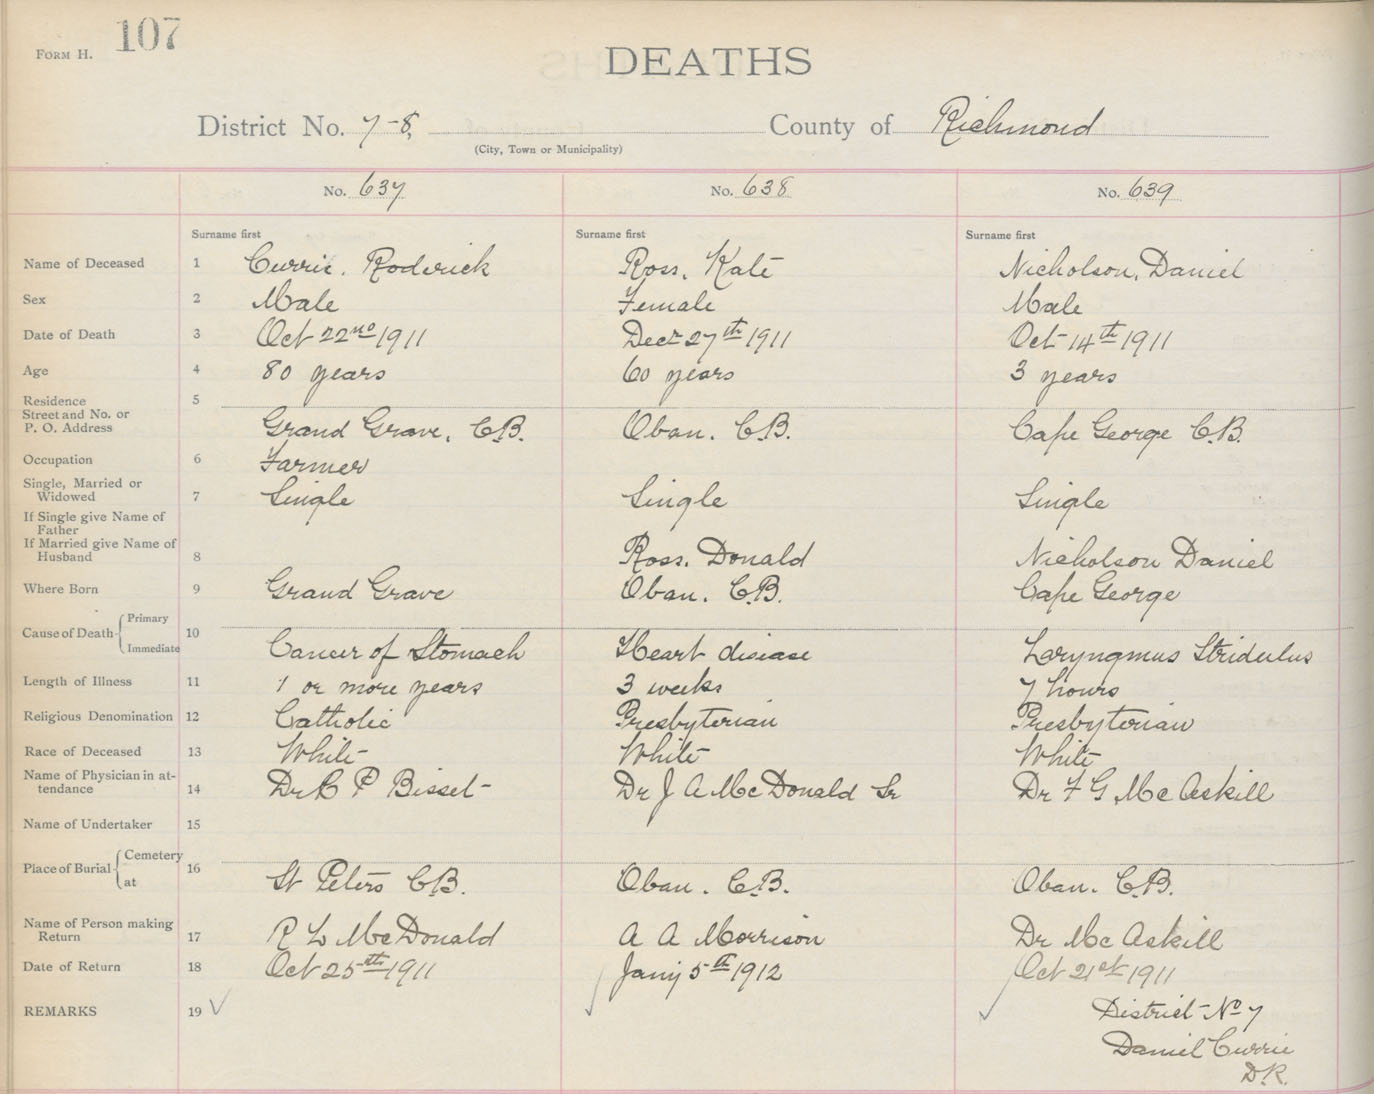 FORM H. 107
DEATHS
District No. 7-8, County of Richmond
(City, Town or Municipality)
No. 637 No. 638 No. 639
Surname first Surname first Surname first
Name of Deceased 1 Currie. Roderick Ross, Kate Nicholson, Daniel
Sex 2 Male Female Male
Date of Death 3 Oct 22nd 1911 Decr 27th 1911 Oct 14th 1911
Age 4 80 years 60 years 3 years
Residence 5
Street and No. or
P. O. Address Grand Grave, C.B. Oban. C.B. Cape George C.B.
Occupation 6 Farmer
Single, Married or
Widowed 7 Single Single Single
If Single give Name of
Father
If Married give Name of
Husband 8 Ross, Donald Nicholson Daniel
Where Born 9 Grand Grave Oban. C.B. Cape George
Cause of Death Primary 10
Immediate Cancer of Stomach Heart disease Laryngmus Stridulus
Length of Illness 11 1 or more years 3 weeks 7 hours
Religious Denomination 12 Catholic Presbyterian Presbyterian
Race of Deceased 13 White White White
Name of Physician in at-
tendance 14 Dr R P Bisset Dr J A McDonald Sr Dr F G McAskill
Name of Undertaker 15
Place of Burial Cemetery 16
at St Peters C.B. Oban. C.B. Oban. C.B.
Name of Person making
Return 17 R L McDonald A A Morrison Dr McAskill
Date of Return 18 Oct 25th 1911 Jany 5th 1912 Oct 21st 1911
REMARKS 19 District No 7
Daniel Currie
D.R.